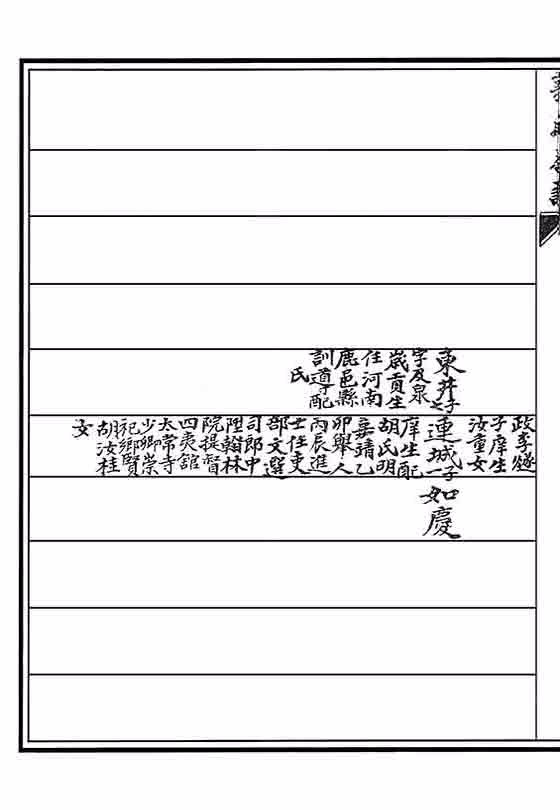 東井子之
字及泉
歲貢生
任河南
鹿邑縣
訓導配
氏
子庠生
汝童女
連城子一
庠生配
胡氏明
嘉靖乙
卯舉人
丙辰進
士任吏
部文選
司郎中
陞翰林
院提督
四夷館
太常寺
少卿崇
祀鄉賢
胡汝桂
女
如慶